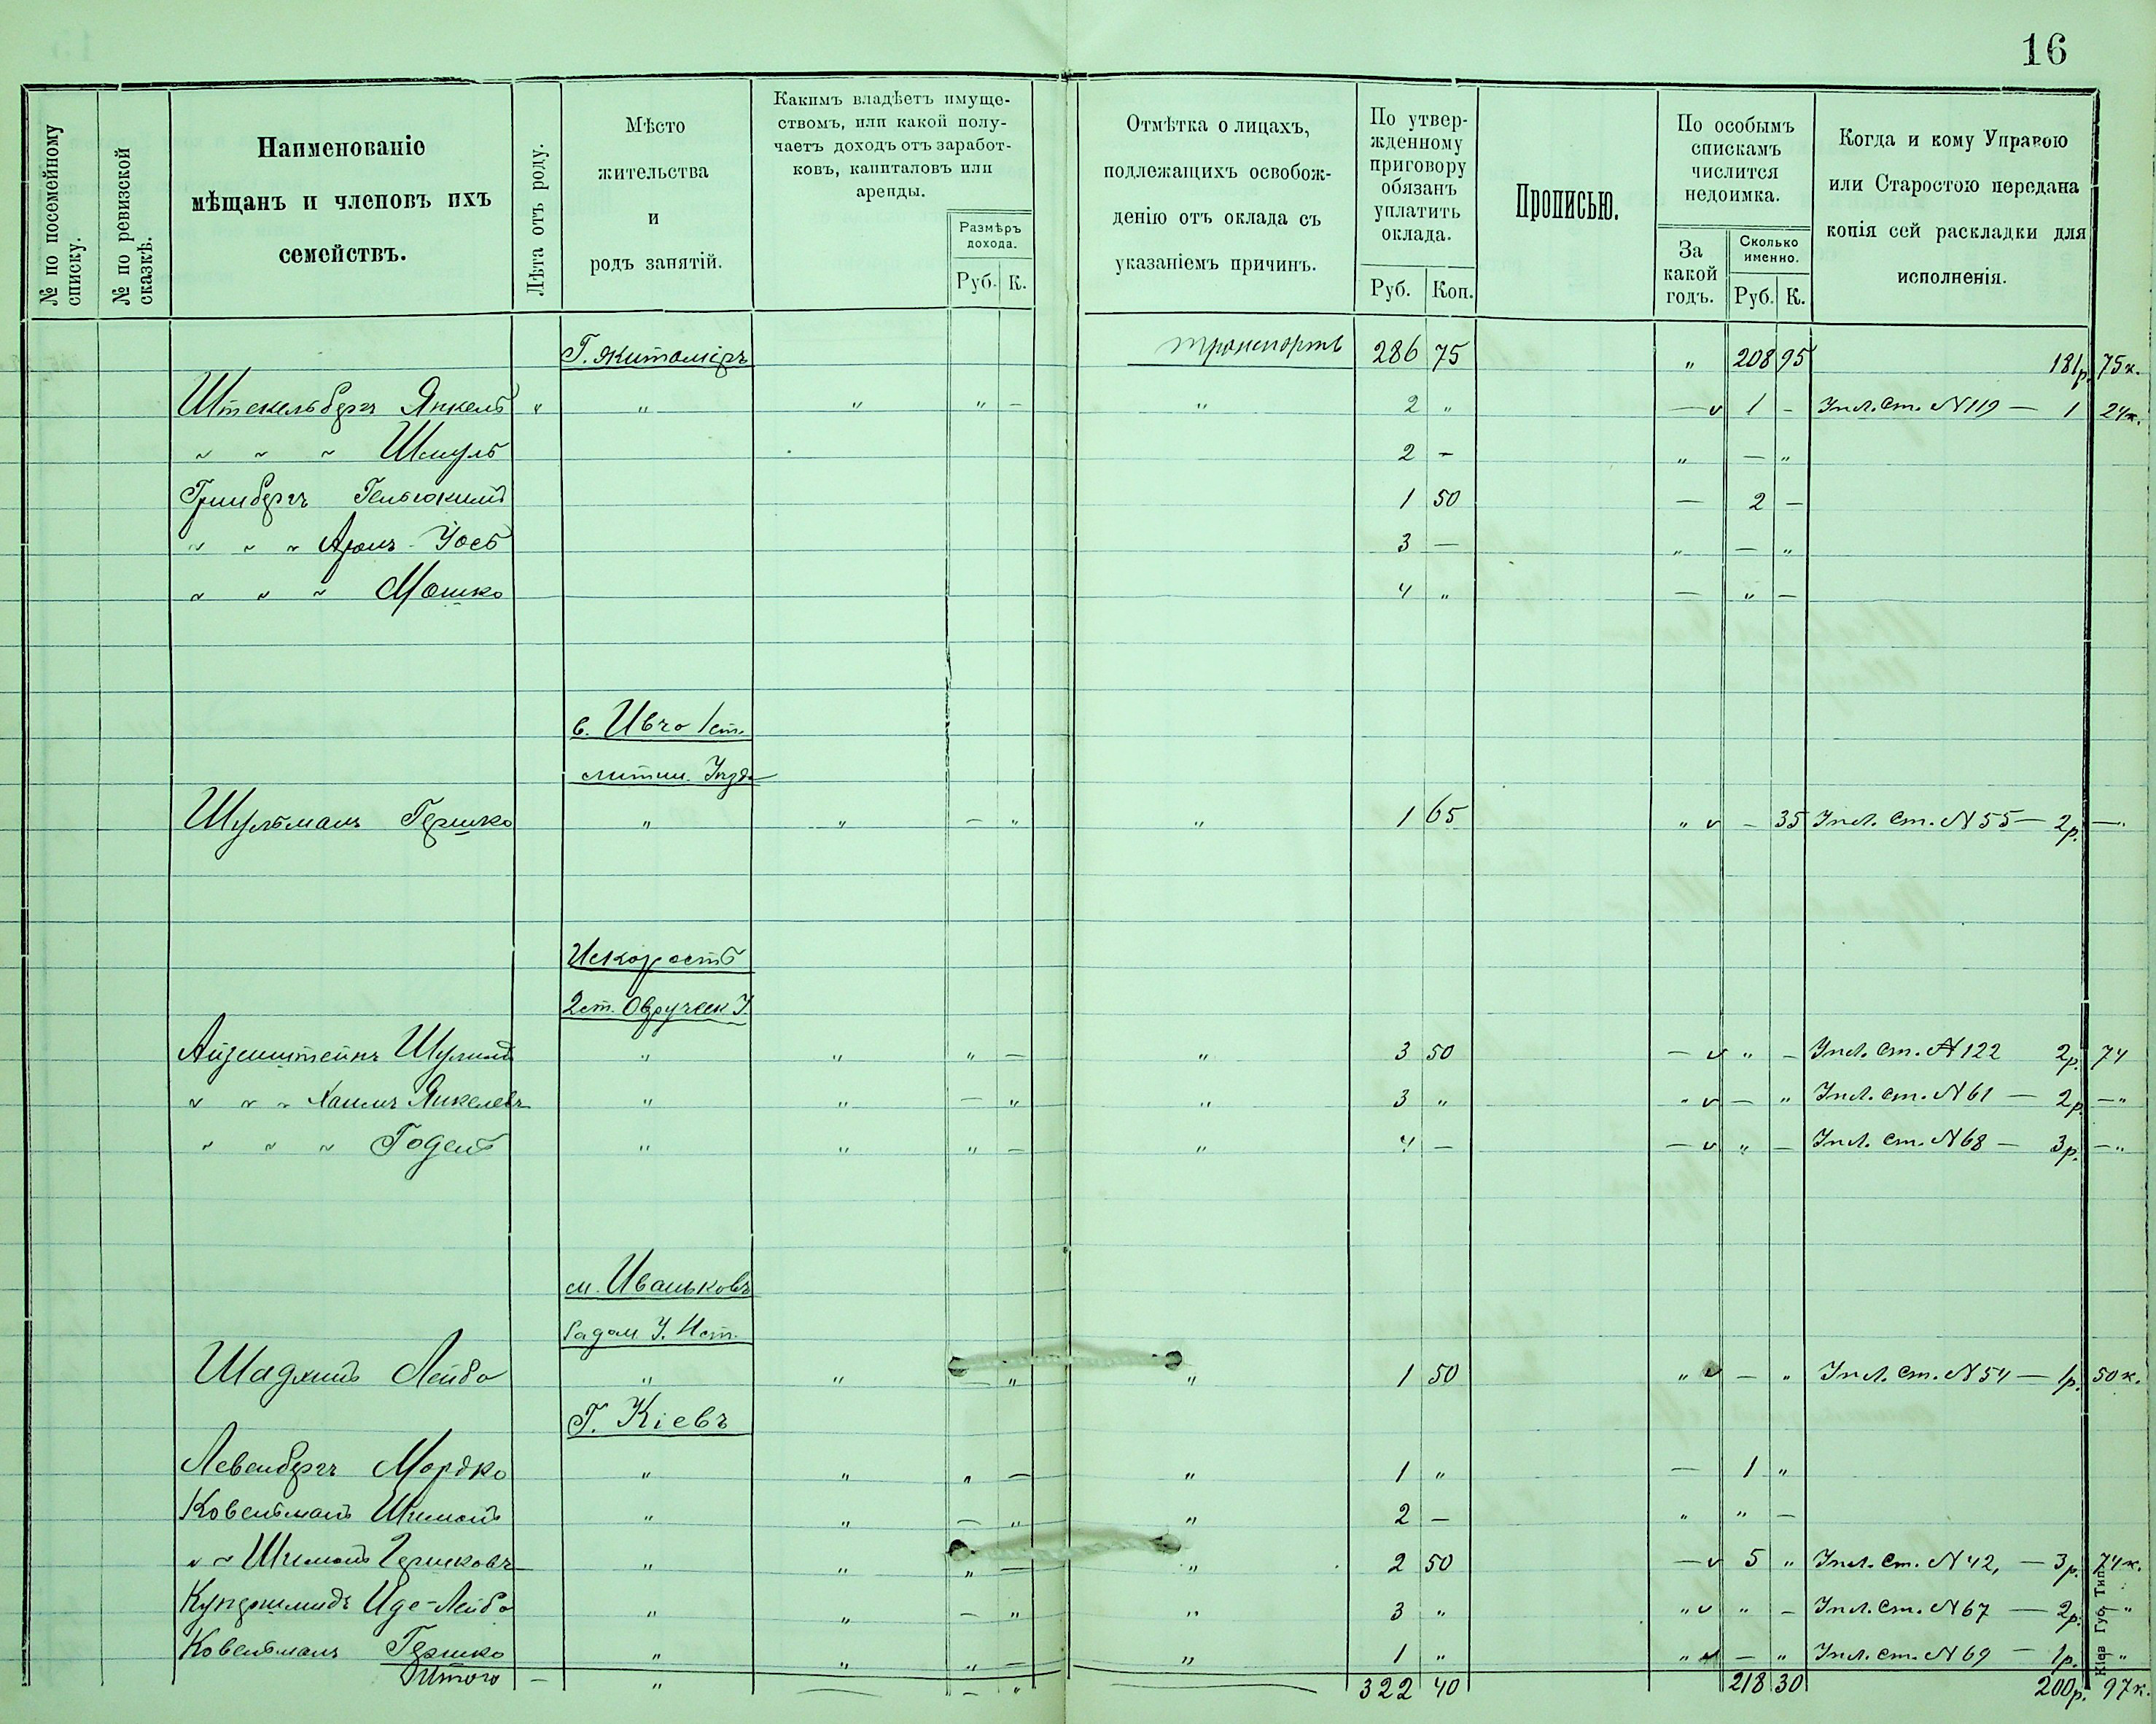 16
№ по посемейному списку.
№ по ревизской сказкѣ.
Наименованіе мѣщанъ и членовъ ихъ семействъ.
Лѣта отъ роду.
Мѣсто жительства и родъ занятій.
Какимъ владѣетъ имуще-
ствомъ, или какой полу-
чаетъ доходъ отъ заработ-
ковъ, капиталовъ или
аренды.
Размѣръ дохода.
Руб. К.
Отмѣтка о лицахъ,
подлежащихъ освобож-
денію отъ оклада съ
указаніемъ причинъ.
По утвер-
жденному
приговору
обязанъ
уплатить
оклада.
Руб. Коп.
Прописью.
По особымъ
спискамъ
числится
недоимка.
За какой годъ.
Сколько именно.
Руб. К.
Когда и кому Управою
или Старостою передана
копія сей раскладки для
исполненія.
Г. Житоміръ транспортъ 286 75 " 208 95 181р. 75к.
Штекельбергъ Янкель " " " " — " 2 " — v 1 — Ст. № 119 — 1 24к.
" " " Шмуль 2 — " — "
Гринбергъ 1 50 — 2 —
" " " Аронъ-Йось 3 — " — "
" " " Мошко 4 " — " —
1 ст.
Шульманъ Гершко " " — " " 1 65 " v — 35 Ст. № 55 — 2р. — "
Искорость
2 ст. Овручск У.
Айзенштейнъ Шулимъ " " " — " 3 50 — v " — Ст. № 122 2р. 74
" " " Хаимъ Янкелевъ " " — " " 3 " " v — " Ст. № 61 — 2р. — "
" " " Годель " " " — " 4 — — v " — Ст. № 68 — 3р. — "
м. Иваньковъ
Радом. У.
Лейба " " — " " 1 50 " v — " Ст. № 54 — 1р. 50к.
Г. Кіевъ
Левенбергъ Мордко " " " — " 1 " — 1 "
Ковельманъ Шимонъ " " — " " 2 — " " —
" " Шимонъ Гершковъ " " " — " 2 50 — v 5 " Ст. № 42, — 3р. 74к.
Купершмидъ Иде-Лейба " " — " " 3 " " v " — Ст. № 67 — 2р. — "
Ковельманъ Гершко " " " — " 1 " " v — " Ст. № 69 — 1р. — "
Итого — " — " 322 40 218 30 200р. 97к.
Губ. Тип.